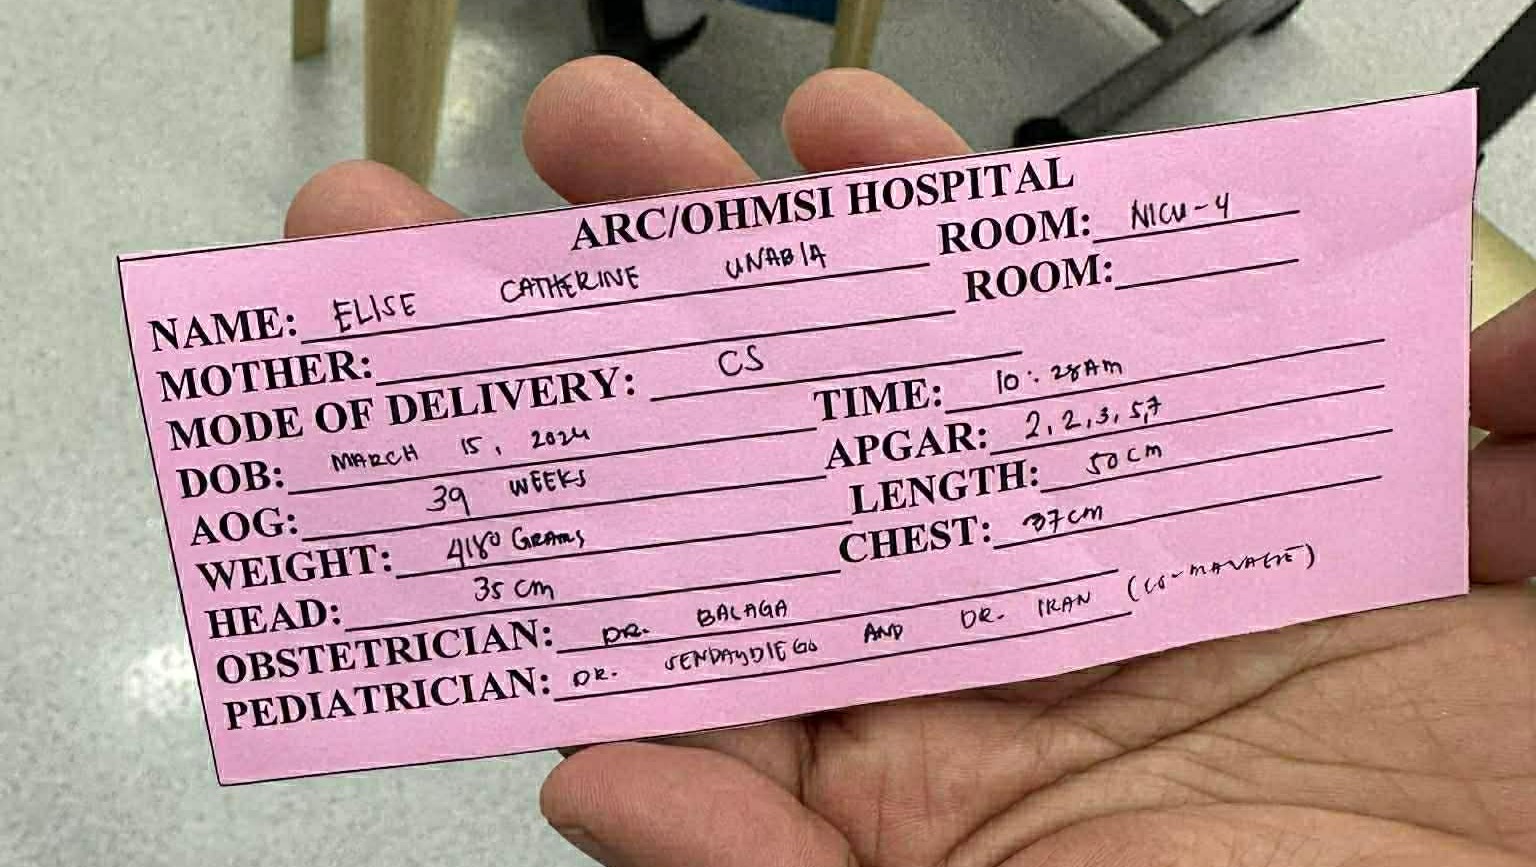 ARC/OHMSI HOSPITAL
NAME: ELISE CATHERINE UNABIA ROOM: NICU-4
MOTHER: ROOM:
MODE OF DELIVERY: CS
DOB: MARCH 15, 2024 TIME: 10:28AM
AOG: 39 WEEKS APGAR: 2,2,3,5,7
WEIGHT: 4180 GRAMS LENGTH: 50 cm
HEAD: 35 cm CHEST: 37cm
OBSTETRICIAN: DR. BALAGA
PEDIATRICIAN: DR. SENDAYDIEGO AND DR. IRAN (CO-MANAGE)